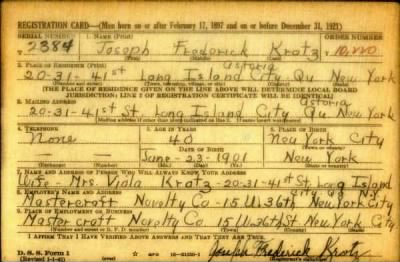 REGISTRATION CARD—(Men born on or after February 17, 1897 and on or before December 31, 1921)
SERIAL NUMBER 1. NAME (Print) ORDER NUMBER
2384 Joseph Frederick Kratz 10,220
Astoria
2. PLACE OF RESIDENCE (Print)
20-31-41st Long Island City Qu New York
[THE PLACE OF RESIDENCE GIVEN ON THE LINE ABOVE WILL DETERMINE LOCAL BOARD
JURISDICTION; LINE 2 OF REGISTRATION CERTIFICATE WILL BE IDENTICAL]
3. MAILING ADDRESS Astoria
20-31-41st St. Long Island City Qu New York
4. TELEPHONE 5. AGE IN YEARS 6. PLACE OF BIRTH
None 40 New York City
DATE OF BIRTH
June-23-1901 New York
7. NAME AND ADDRESS OF PERSON WHO WILL ALWAYS KNOW YOUR ADDRESS
Wife Mrs. Viola Kratz-20-31-41st St. Long Island
City Qu NY
8. EMPLOYER'S NAME AND ADDRESS
Mastercraft Novelty Co-15 W. 36th New York City
9. PLACE OF EMPLOYMENT OR BUSINESS
Master craft Novelty Co. 15 W. 36th St. New York City
I AFFIRM THAT I HAVE VERIFIED ABOVE ANSWERS AND THAT THEY ARE TRUE.
D. S. S. Form 1
(Revised 1-1-42) Joseph Frederick Kratz